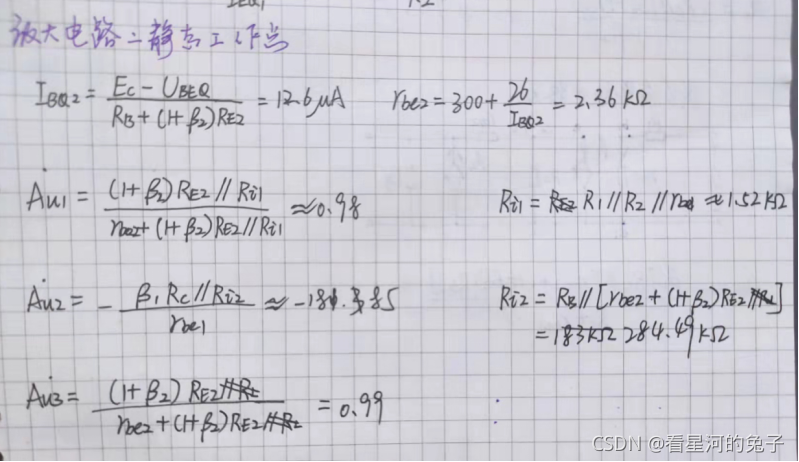 放大电路二静态工作点
I_BQ2 = (E_C - U_BEQ) / (R_B + (1+β_2)R_E2) = 12.6μA r_be2 = 300 + 26/I_BQ2 = 2.36kΩ
Ȧ_u1 = (1+β_2)R_E2//R_i1 / (r_be2 + (1+β_2)R_E2//R_i1) ≈ 0.98 R_i1 = R_1//R_2//r_be1 ≈ 1.52kΩ
Ȧ_u2 = - β_1 R_C//R_i2 / r_be1 ≈ -181.85 R_i2 = R_B//[r_be2 + (1+β_2)R_E2]
= 284.49kΩ
Ȧ_u3 = (1+β_2)R_E2 / (r_be2 + (1+β_2)R_E2) = 0.99
CSDN @看星河的兔子